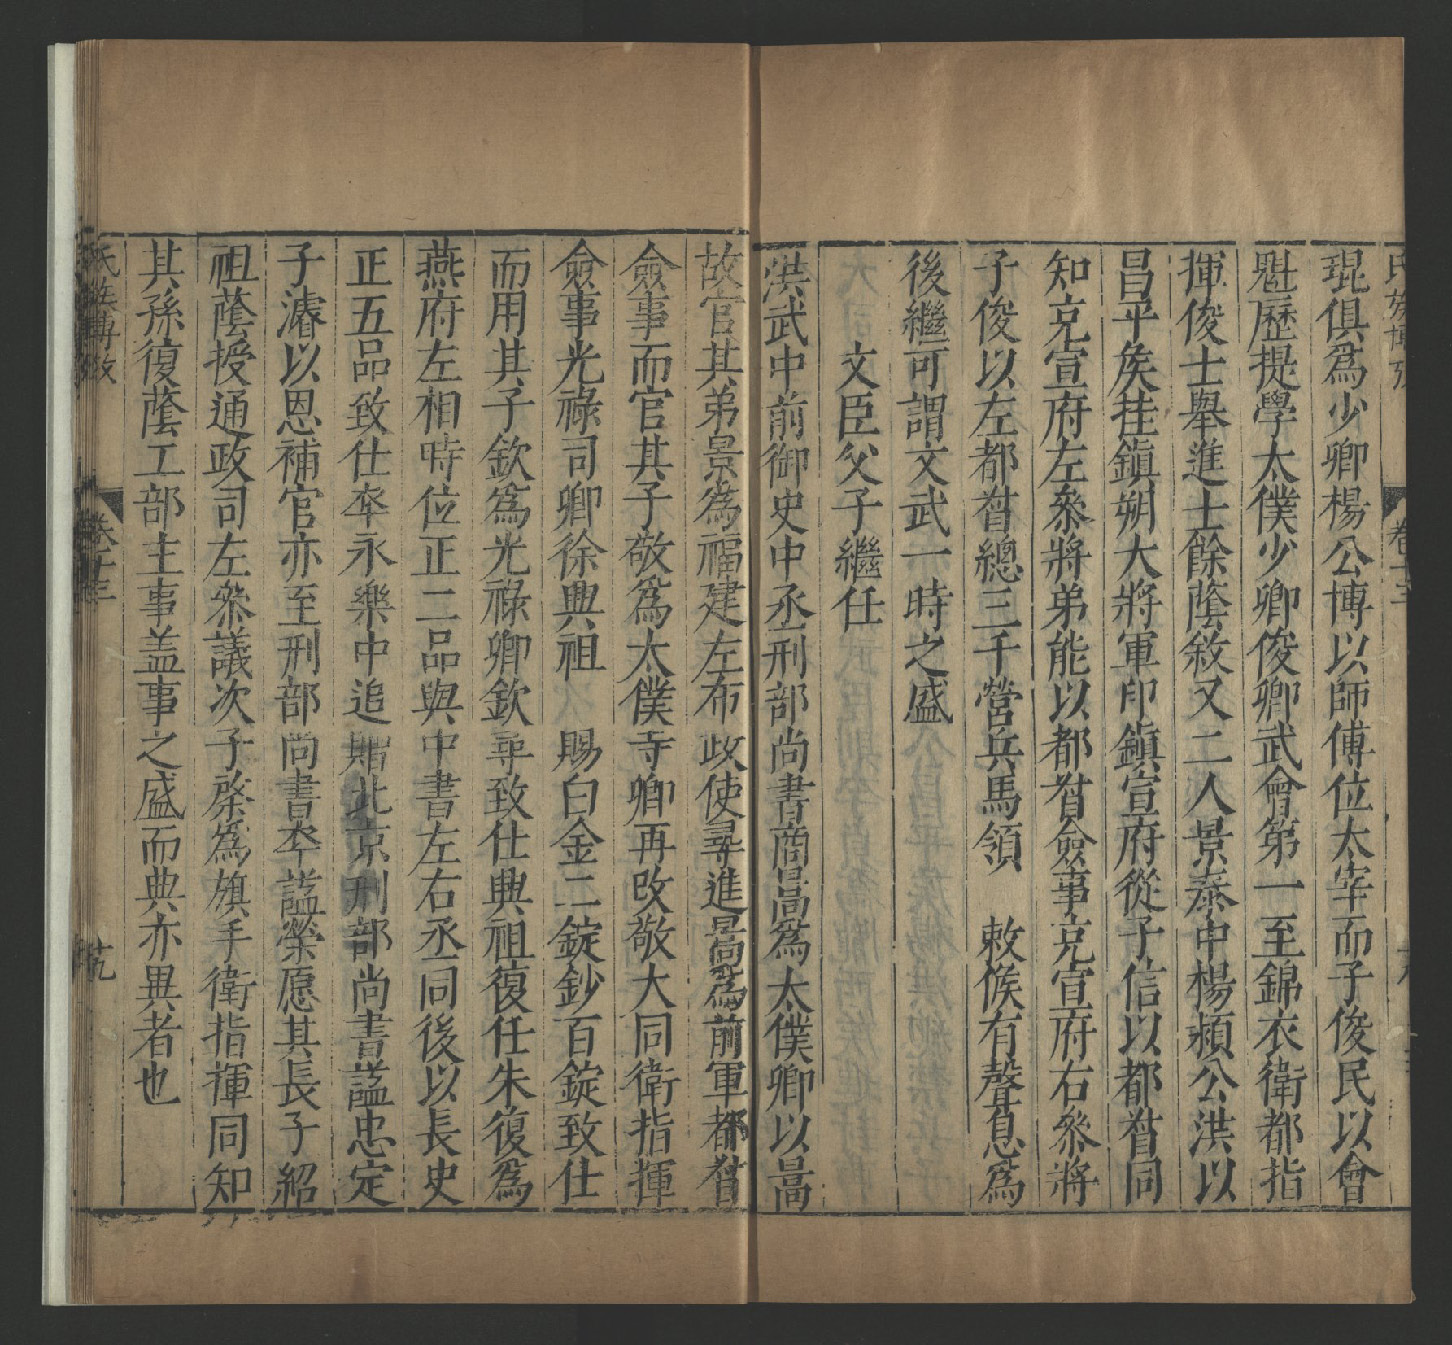 琨俱爲少卿楊公博以師傅位太宰而子俊民以會
魁歷提學太僕少卿俊卿武會第一至錦衣衛都指
揮俊士舉進士餘蔭敘又二人景泰中楊頴公洪以
昌平侯挂鎮朔大將軍印鎮宣府從子信以都督同
知克宣府左叅將弟能以都督僉事克宣府右叅將
子俊以左都督總三千營兵馬領 敕候有聲息爲
後繼可謂文武一時之盛
文臣父子繼任
洪武中前御史中丞刑部尚書商暠爲太僕卿以暠
故官其弟景爲福建左布政使尋進暠爲前軍都督
僉事而官其子敬爲太僕寺卿再改敬大同衛指揮
僉事光祿司卿徐興祖 賜白金二錠鈔百錠致仕
而用其子欽爲光祿卿欽尋致仕興祖復任朱復爲
燕府左相時位正二品與中書左右丞同後以長史
正五品致仕卒永樂中追贈北京刑部尚書謚忠定
子濬以恩補官亦至刑部尚書卒謚榮愿其長子紹
祖蔭授通政司左叅議次子榮爲旗手衛指揮同知
其孫復蔭工部主事盖事之盛而典亦異者也
氏族博攷
卷十三
十九